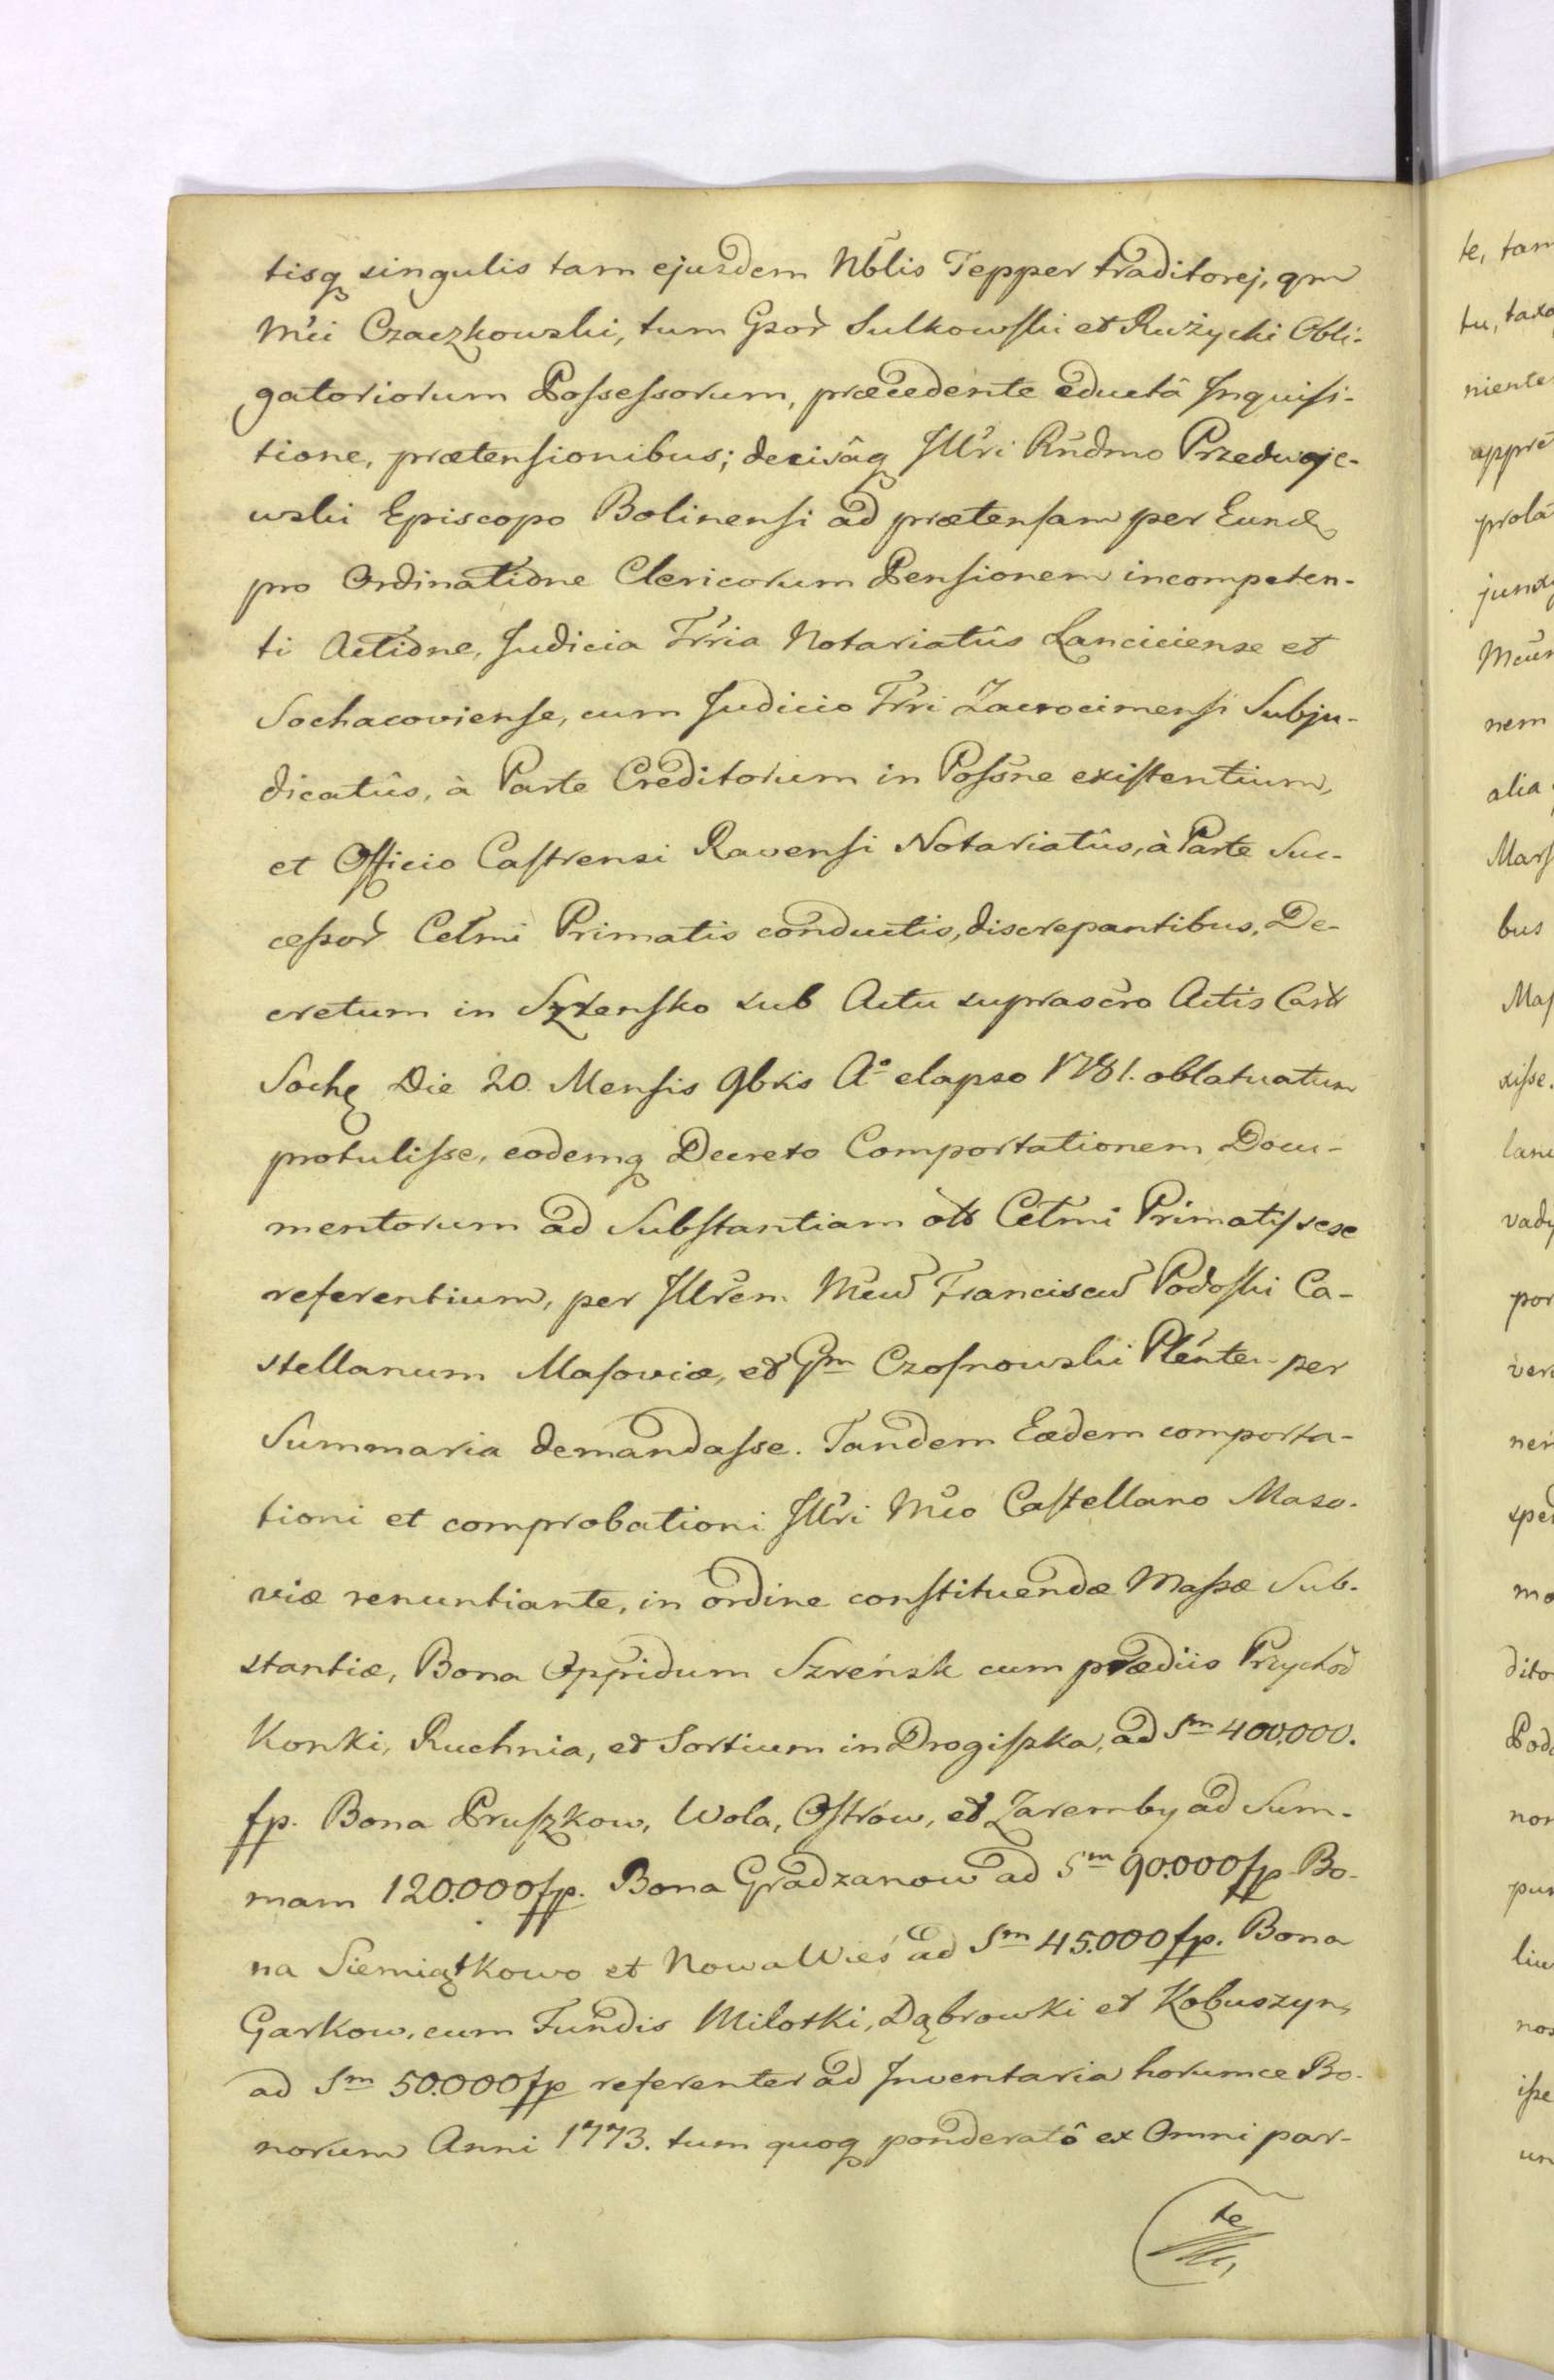 tisq singulis tam ejusdem Nblis Tepper traditorej, qm
Mci Czaczkowski, tum Gsor Sulkowski et Rużycki Obli-
gatoriorum Possessorum, præcedente eductâ Inquisi-
tione, prætensionibus; decisâq Illri Rndmo Przedwoje-
wski Episcopo Bolinensi ad prætensam per Eund
pro Ordinatione Clericorum Pensionem incompeten-
ti Actione, Judicia Trria Notariatûs Lanciciense et
Sochacoviense, cum Judicio Trri Zacrocimensi Subju-
dicatûs, à Parte Creditorum in Possne existentium,
et Officio Castrensi Ravensi Notariatûs, à Parte Suc-
cessor Celmi Primatis conductis, discrepantibus, De-
cretum in Szrensko sub Actu suprascro Actis Castr
Soch Die 20 Mensis 9bris Aº elapso 1781. oblatuatum
protulisse, eodemq Decreto Comportationem Docu-
mentorum ad Substantiam Celmi Primatis sese
referentium, per Illrem Mcu Franciscu Podoski Ca-
stellanum Masoviæ, et Gm Czosnowski Plenten per
Summaria demandasse. Tandem Eædem comporta-
tioni et comprobationi Illri Mco Castellano Maso-
viæ renuntiante, in ordine constituendæ Massæ Sub-
stantiæ, Bona Oppidum Szreńsk cum prædiis Przychod
Konki, Ruchnia, et Sortium in Drogiszka, ad Sm 400,000.
fp. Bona Pruszkow, Wola, Ostrów, et Zaremby ad Sum-
mam 120.000 fp. Bona Gradzanow ad Sm 90.000 fp Bo-
na Siemiątkowo et Nowa Wieś ad Sm 45.000 fp. Bona
Garkow, cum Fundis Miłotki, Dąbrowki et Kobuszyn,
ad Sm 50.000 fp referenter ad Inventaria horumce Bo-
norum Anni 1773. tum quoq ponderatô ex Omni par-
te
te, tam
niente
prola
nem
alia
bus
por